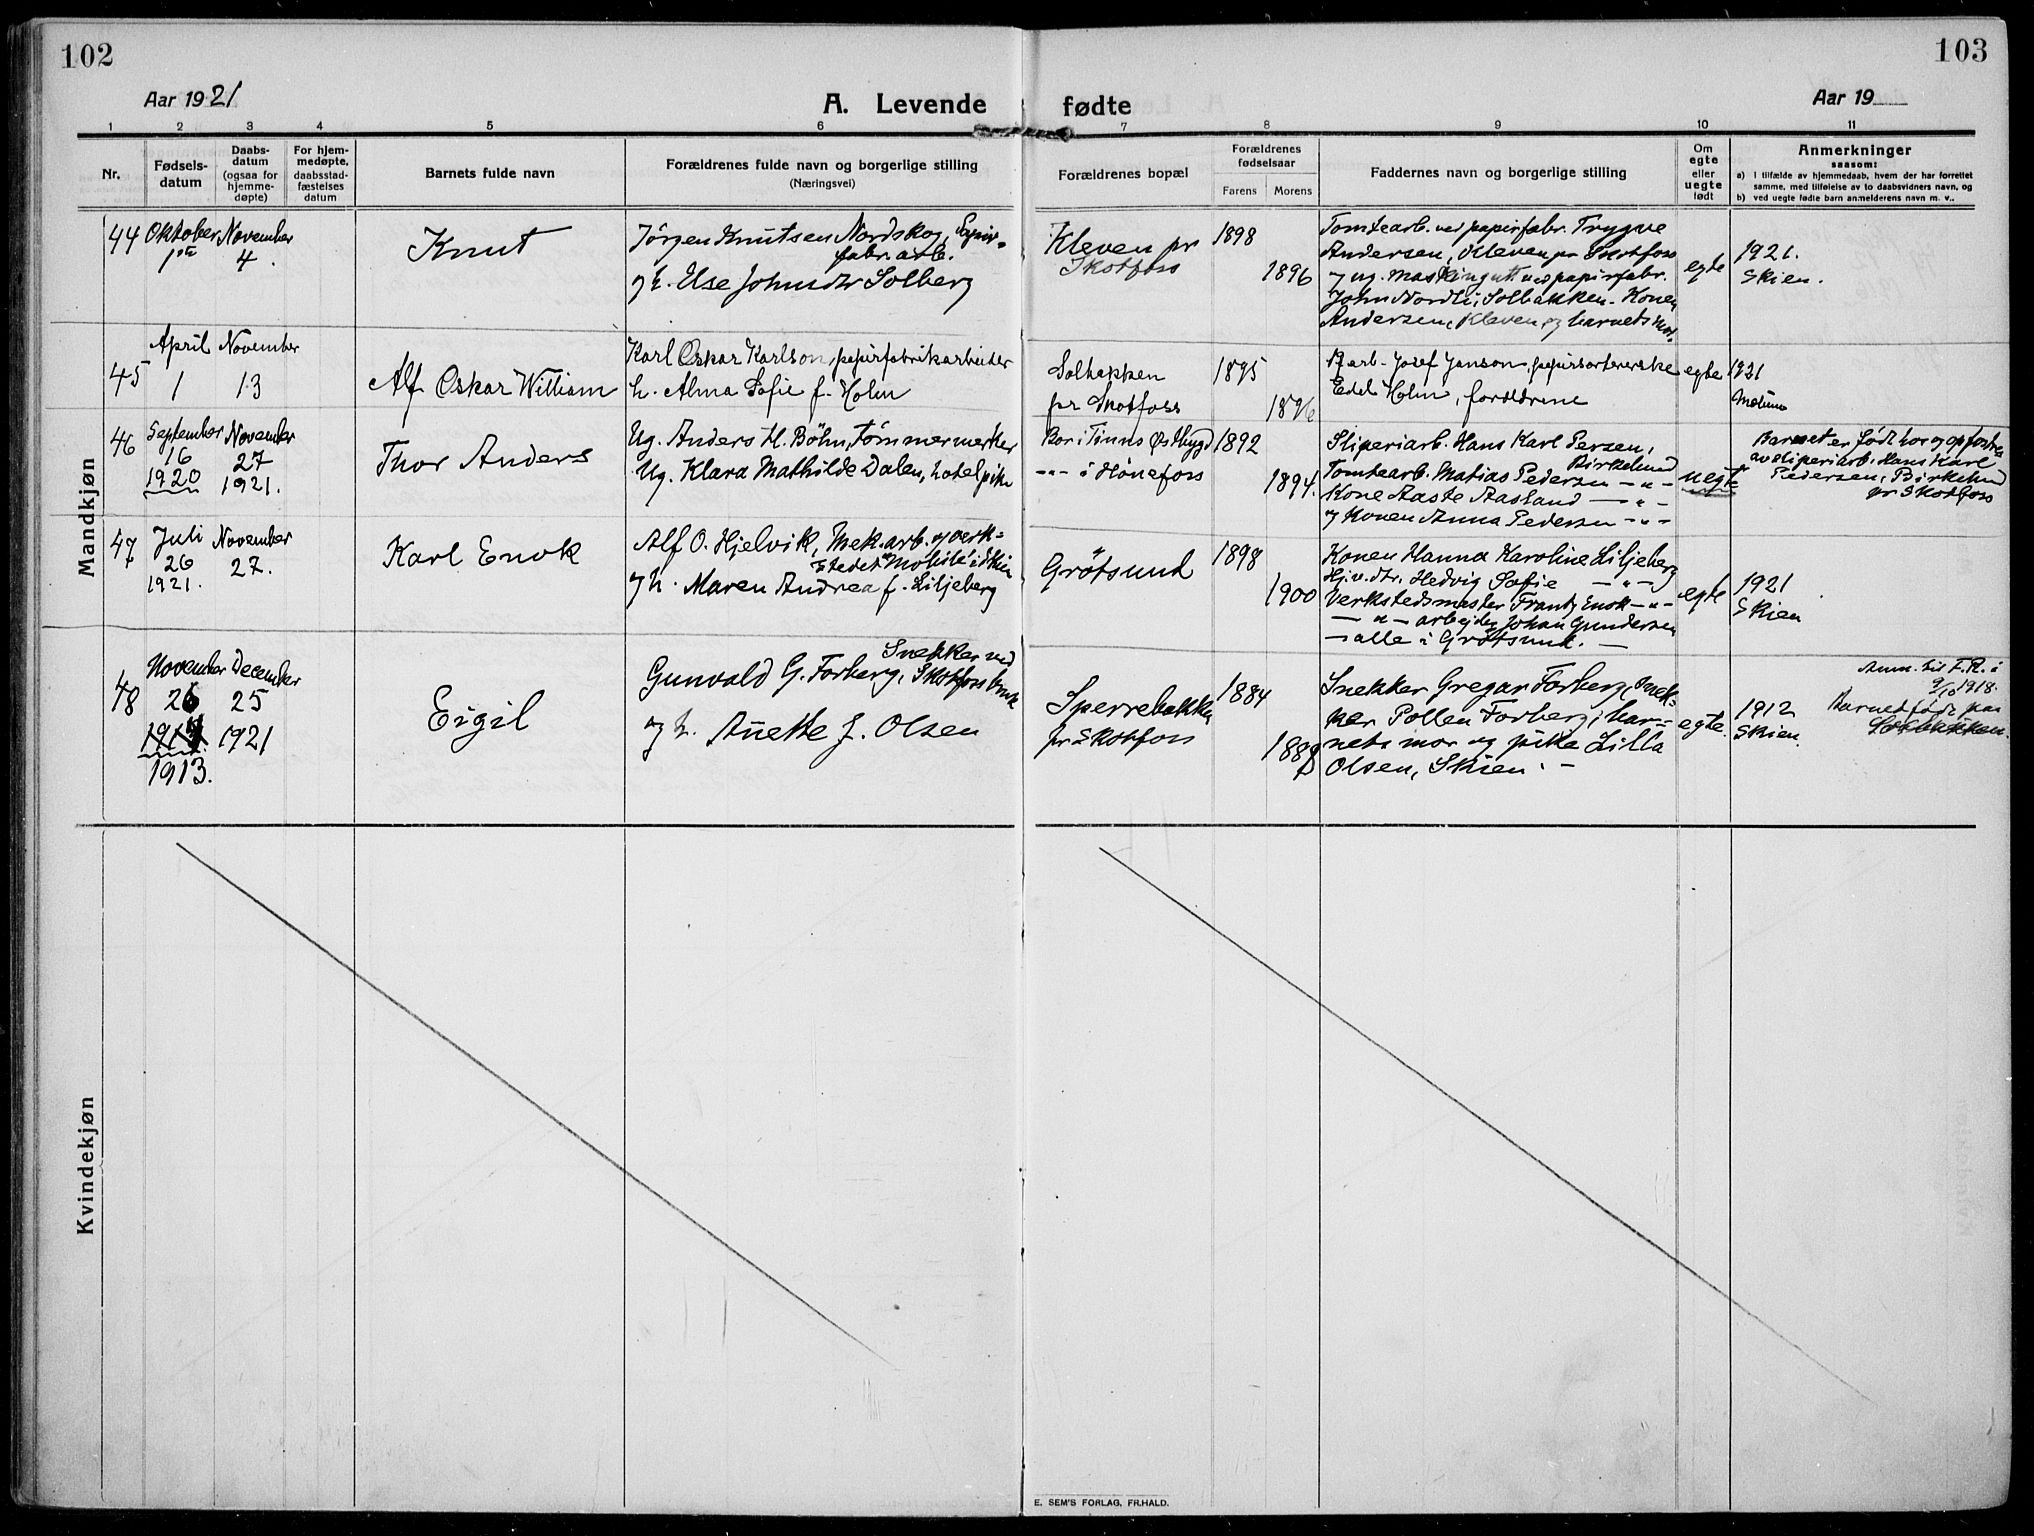 102
103
Aar 1921
A. Levende fødte
Aar 19
1 2 3 4 5 6 7 8 9 10 11
Nr.
Fødsels-
datum
Daabs-
datum
(ogsaa for
hjemme-
døpte)
For hjem-
medøpte,
daabsstad-
fæstelses
datum
Barnets fulde navn
Forældrenes fulde navn og borgerlige stilling
(Næringsvei)
Forældrenes bopæl
Forældrenes
fødselsaar
Farens Morens
Faddernes navn og borgerlige stilling
Om
egte
eller
uegte
født
Anmerkninger
saasom:
a) I tilfælde av hjemmedaab, hvem der har forrettet
samme, med tilføielse av to daabsvidners navn, og
b) ved uegte fødte barn anmelderens navn m. v..
Mandkjøn
44
Oktober
1ste
November
4.
Knut
Jörgen Knutsen Nordskog, Papir-
fabr. arb.
og h. Else Johnsdtr Solberg
Kleven pr
Skotfoss
1898
1896
Tomtearb. ved papirfabr. Trygve
Andersen, Kleven pr Skotfoss
og ug. maskingutt ved papirfabr.
John Nordli, Solbakken. Konen
Andersen, Kleven og barnets mor.
egte
1921.
Skien.
45
April
1
November
13
Alf Oskar William
Karl Oskar Karlson, papirfabrikarbeider
h. Alma Sofie f. Holm
Solbakken
pr Skotfoss
1895
1896
arb. Josef Janson, papirsortererske
Edel Holm, forældrene
egte
1921
Melum
46
September
16
1920
November
27
1921.
Thor Anders
Ug. Anders H. Böhn, Tømmermerker
Ug. Klara Mathilde Dalen, hotelpike
Bor i Tinns Østbygd
-"- i Hönefoss
1892
1894.
Sliperiarb. Hans Karl Persen,
Birkelund
Tomtearb. Matias Pedersen -"-
Kone Aaste Aasland -"-
og Konen Anna Pedersen -"-
uegte
Barnet er født hos og opfostres
av sliperiarb. Hans Karl
Pedersen, Birkelund
pr Skotfoss
47
Juli
26
1921.
November
27.
Karl Enok
Alf O. Hjelvik, Mek. arb. og verk-
stedet i Skien
og h. Maren Andrea f. Liljeberg
Grötsund
1898
1900
Konen Hanna Karoline Liljeberg
Hjv. dtr. Hedvig Sofie -"-
Verkstedsmester Frantz Enok -"-
-"- arbejder Johan Gundersen
- alle i Grötsund. -
egte
1921
Skien
48
November
26
1914
1913.
December
25
1921
Eigil
Snekker ved
Gunvald G. Forberg, Skotfoss bruk
og h. Anette f. Olsen
Sperrebakken
pr Skotfoss
1884
1888
Snekker Gregar Forberg, Snek-
ker Pollen Forberg, bar-
nets mor og pike Lilla
Olsen, Skien. -
egte.
1912
Skien.
Anm. til F.R. i
9/10 1918.
Barnet født paa
Solbakken.
Kvindekjøn
E. SEM'S FORLAG, FR.HALD.